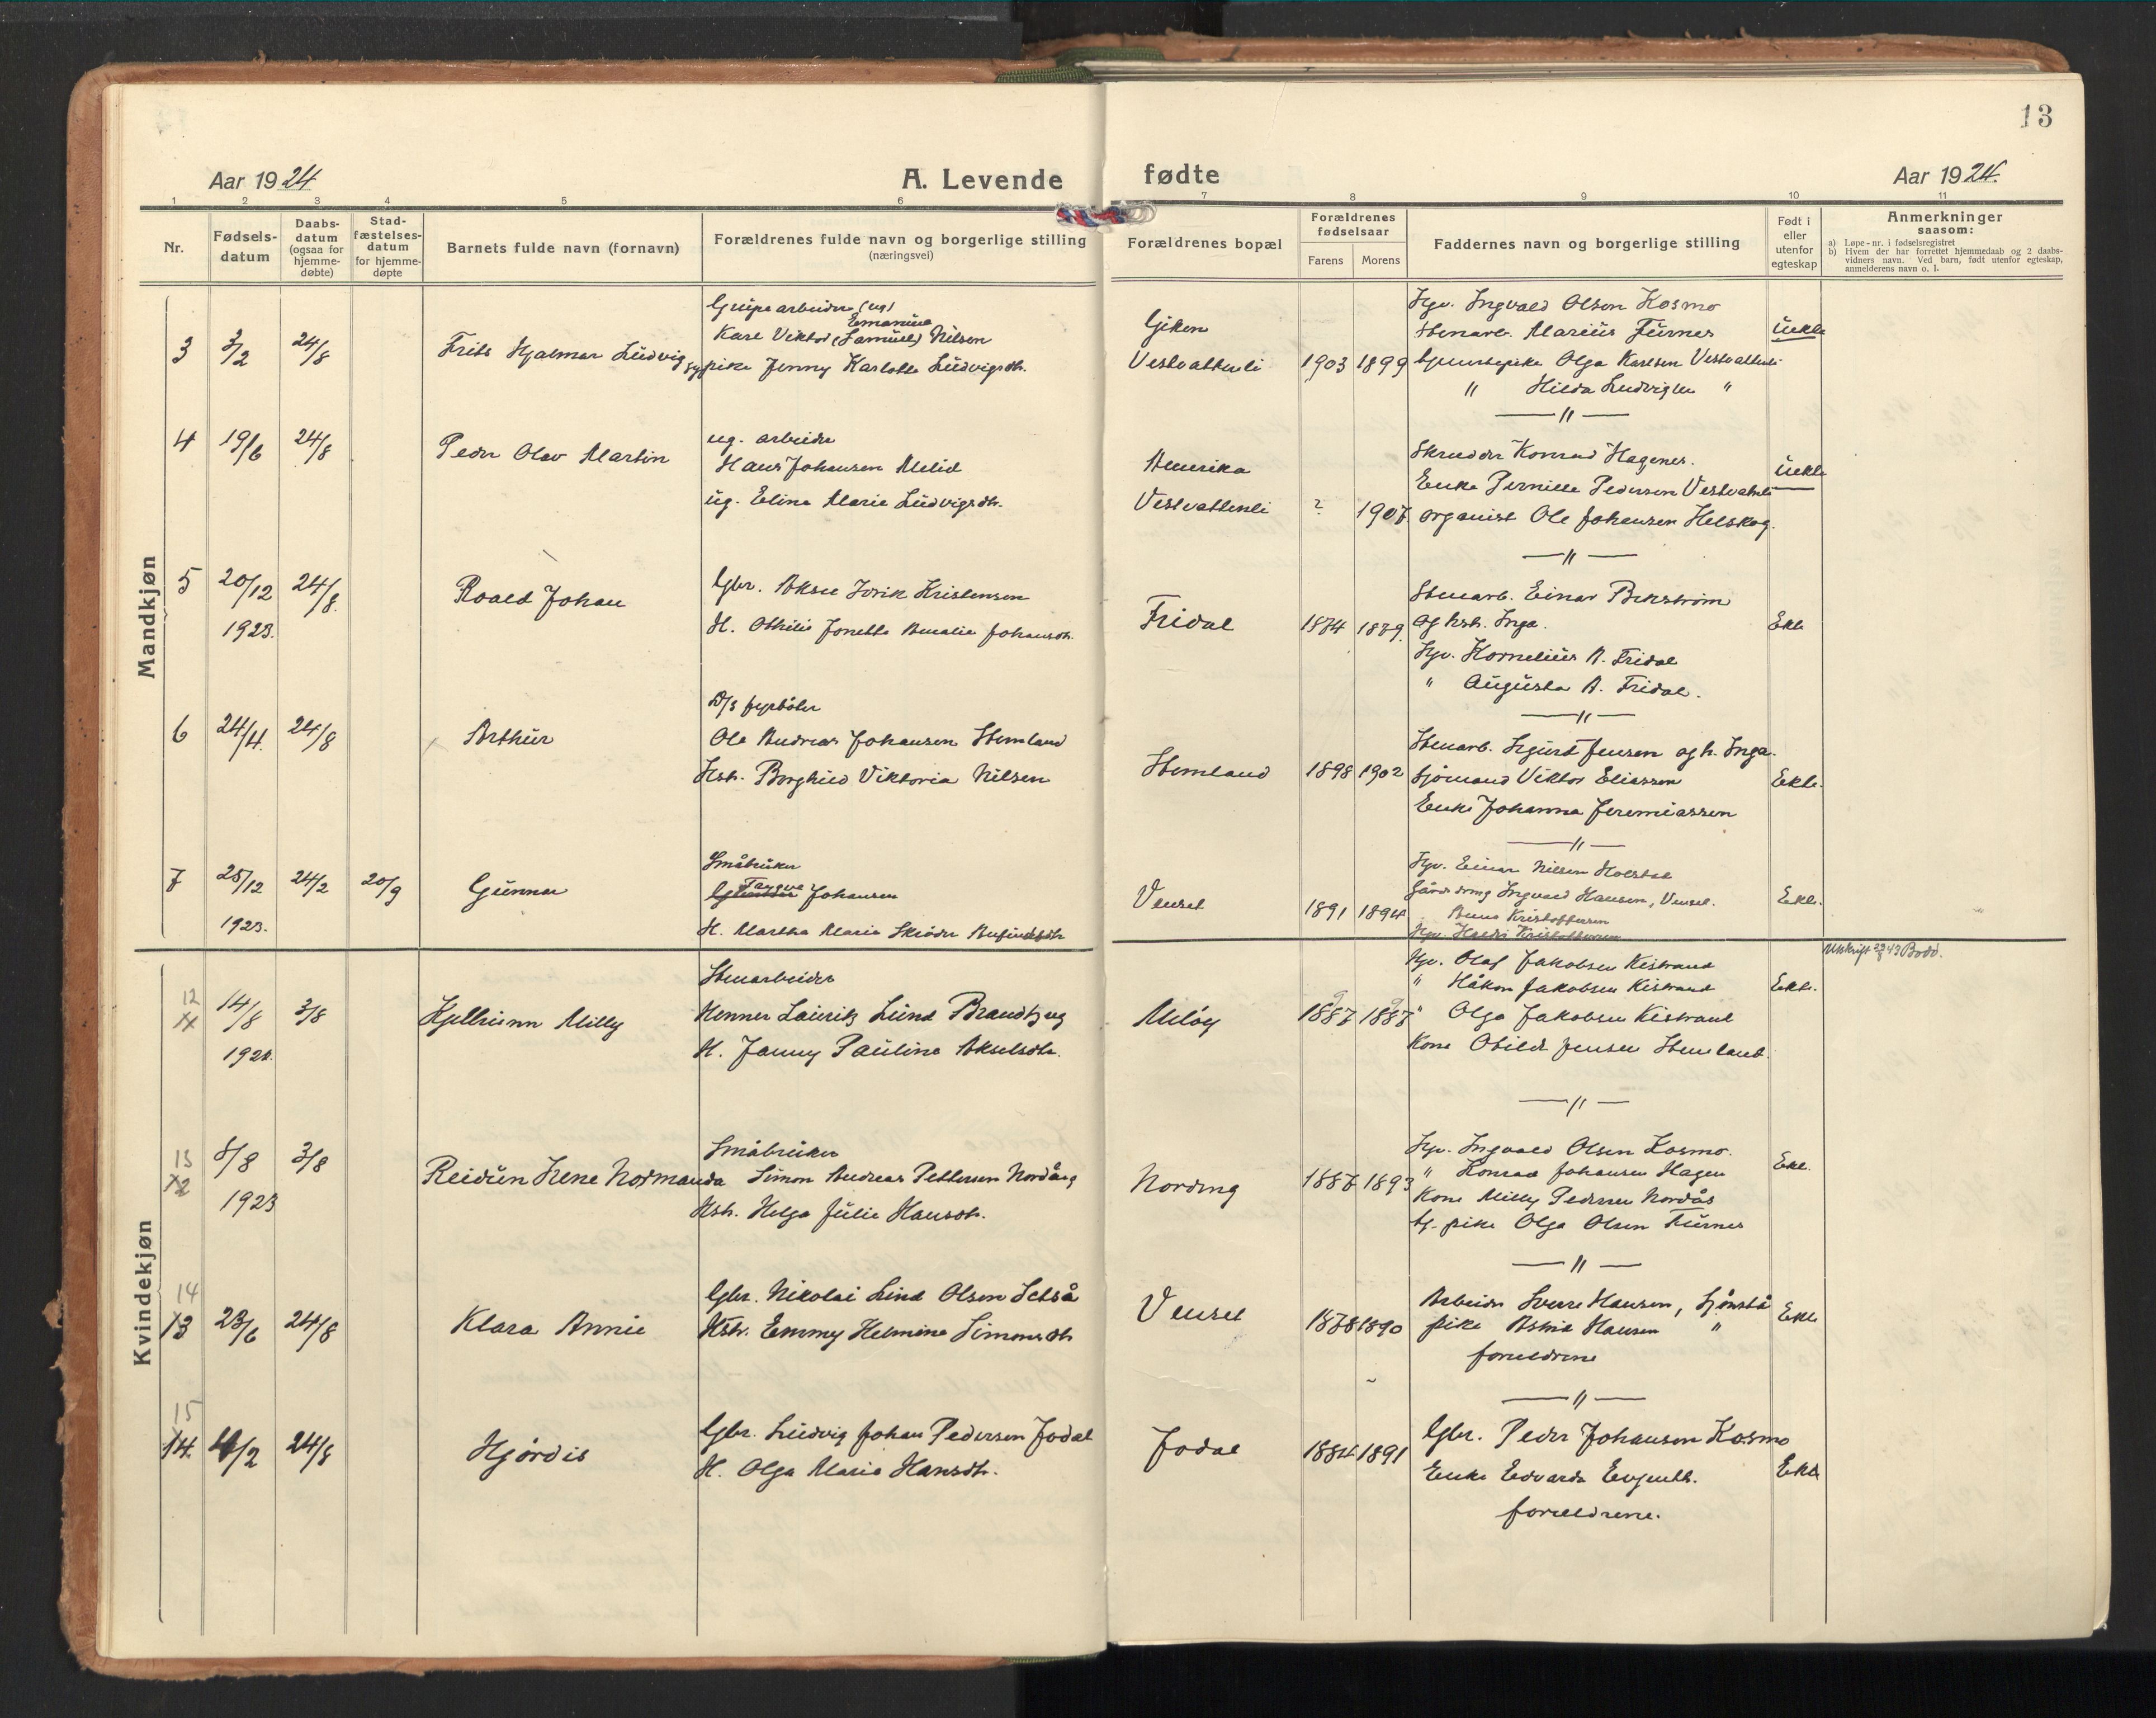 13
Aar 1924
A. Levende
fødte
Aar 1924.
1 2 3 4 5 6 7 8 9 10 11
Nr.
Fødsels-
datum
Daabs-
datum
(ogsaa for
hjemme-
døbte)
Stad-
fæstelses-
datum
for hjemme-
døpte
Barnets fulde navn (fornavn)
Forældrenes fulde navn og borgerlige stilling
(næringsvei)
Forældrenes bopæl
Forældrenes
fødselsaar
Farens
Morens
Faddernes navn og borgerlige stilling
Født i
eller
utenfor
egteskap
Anmerkninger
saasom:
a) Løpe-nr. i fødselsregistret
b) Hvem der har forrettet hjemmedaab og 2 daabs-
vidners navn. Ved barn, født utenfor egteskap,
anmelderens navn o. l.
Mandkjøn
3 3/2 24/8 Frits Hjalmar Ludvig
Grupearbeider (ug)
Emanuel
Karl Viktor (Samuel) Nilsen
sypike Jenny Karlotte Ludvigsdtr.
Giken
Vestvattenli 1903 1899
Gjv. Ingvald Olsen Kosmo
Stenarb. Marius Furnes
Tjenestepike Olga Karlsen Vestvattenli
" Hilda Ludvigsen "
Uekte
4 19/6 24/8 Peder Olav Martin
ug. arbeider
Hans Johansen Melid
ug. Eline Marie Ludvigsdtr.
Amerika
Vestvattenli ? 1907
Skredder Konrad Hagenes.
Enke Pernille Pedersen Vestvatnli
organist Ole Johansen Helskog.
Uekte
5 20/12 24/8.
1923.
Roald Johan
Gbr. Aksel Jorik Kristensen
H. Othilie Jonette Amalie Johansdtr.
Fridal 1874 1879.
Stenarb. Einar Bekstrøm
og hst. Inga.
Gjv. Kornelius A. Fridal
" Augusta A. Fridal.
Ekte
6 24/4. 24/8 Arthur
D/s fyrbøter
Ole Andreas Johansen Stemland
Hst. Borghild Viktoria Nilsen
Stemland 1898 1902
Stenarb. Sigurd Jensen og h. Inga.
Sjømand Viktor Eliassen
Enke Johanna Jeremiassen
Ekte.
7 25/12 24/2 20/9 Gunnar
1923.
Småbruker
Trygve Johansen
H. Martha Marie Skrøder Anfindsdtr
Venset 1891 1894
Gjv. Einar Nilsen Holstad
Gårdsdreng Ingvald Hansen, Venset.
Anna Kristoffersen
Gjv. Haldis Kristoffersen
Ekte.
Kvindekjøn
12
11 14/8 3/8 Kjellrunn Milly
1922.
Stenarbeider
Henner Lauritz Lund Brandtzeg
H. Janny Pauline Akselsdtr.
Meløy 1887 1887
Gjv. Olaf Jakobsen Kistrand
" Håkon Jakobsen Kistrand
" Olga Jakobsen Kistrand
Kone Otilde Jensen Stemland.
Ekte.
Utskrift 23/8 43 Bodø.
13
12 8/8 3/8 Reidun Irene Normanda
1923
Småbruker
Simon Andreas Pettersen Nordång
Hst. Helga Julie Hansdtr.
Nordeng 1887 1893
Gjv. Ingvald Olsen Kosmo.
" Konrad Johansen Hagen
Kone Milly Pedersen Nordås
Tj. pike Olga Olsen Furnes
Ekte.
14
13 23/6 24/8 Klara Annie
Gbr. Nikolai Lind Olsen Setså
Hst. Emmy Helmine Simonsdtr
Venset 1878 1890
Arbeider Sverre Hansen, Sjønstå
pike Astrid Hansen "
foreldrene
Ekte
15
14. 4/2 24/8 Hjørdis
Gbr. Ludvig Johan Pedersen Jodal
H. Olga Marie Hansdtr.
Jodal 1884 1891
Gbr. Peder Johansen Kosmo
Enke Edvarda Evjenth.
foreldrene.
Ekte